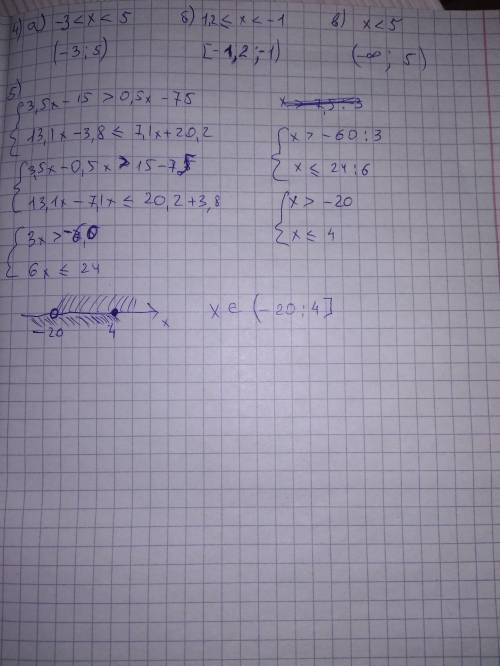 4) а) -3 < x < 5 б) 1,2 ≤ x < -1 в) x < 5
(-3; 5) [-1,2; -1) (-∞; 5)
5)
{ 3,5x - 15 > 0,5x - 75
13,1x - 3,8 ≤ 7,1x + 20,2
{ 3,5x - 0,5x > 15 - 75
13,1x - 7,1x ≤ 20,2 + 3,8
{ 3x > -60
6x ≤ 24
{ x > -60 : 3
x ≤ 24 : 6
{ x > -20
x ≤ 4
-20 4 x
x ∈ (-20; 4]